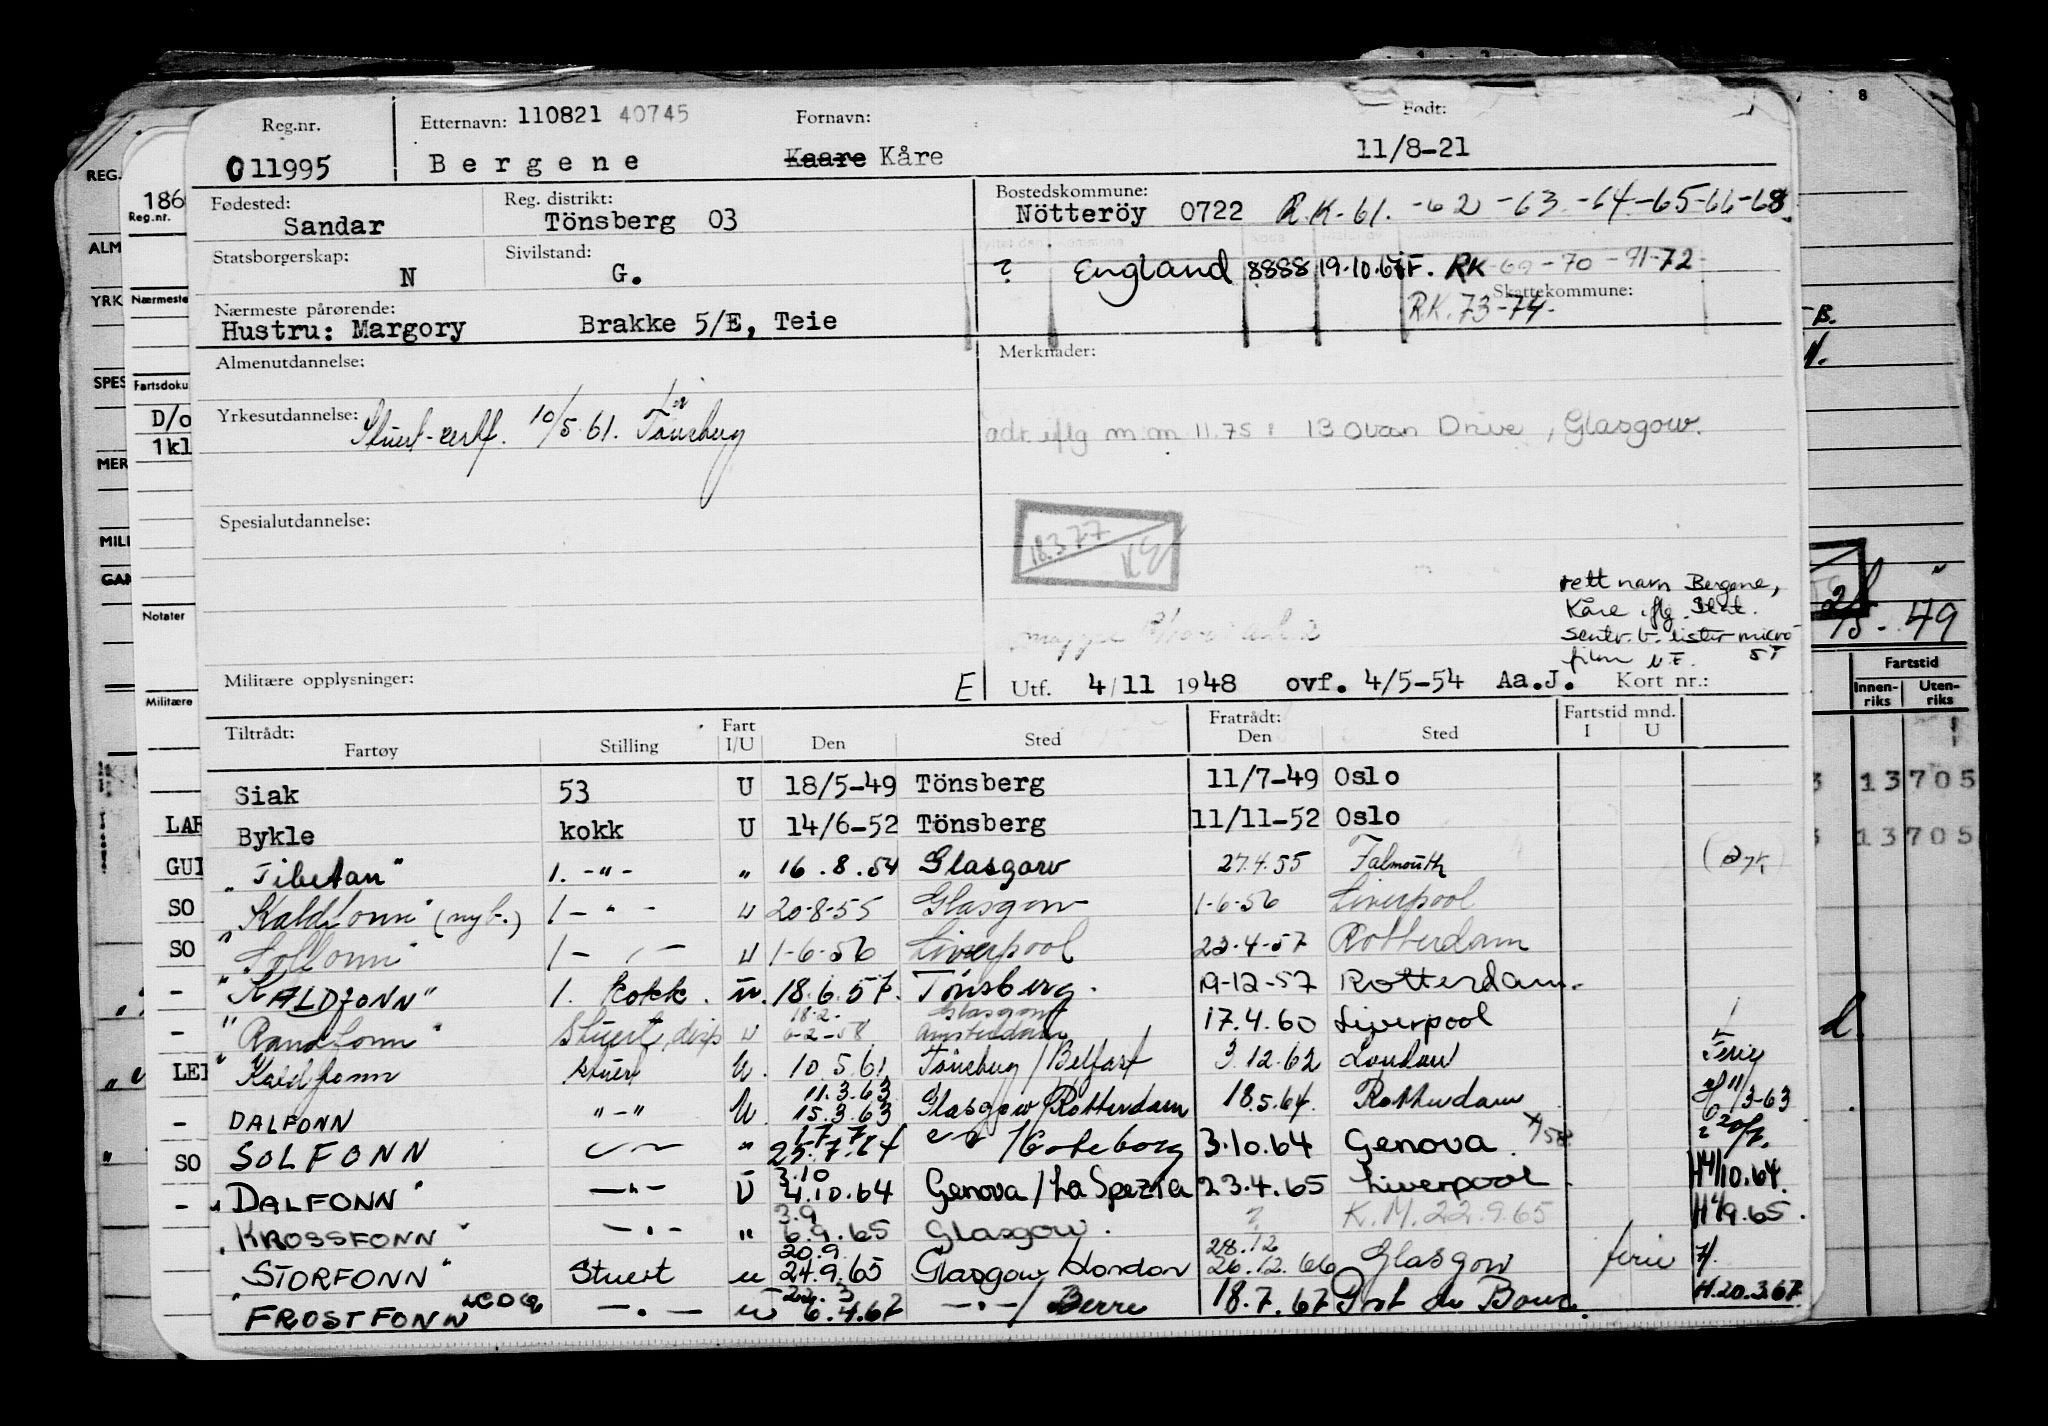 Reg.nr. Etternavn: 110821 40745 Fornavn: Født:
011995 Bergene Kaare Kåre 11/8-21
Fødested: Reg. distrikt: Bostedskommune:
Sandar Tönsberg 03 Nötteröy 0722 R.K-61. -62 -63 -64 -65-66-68
Statsborgerskap: Sivilstand:
N G. ? England 8888 19.10.67 F. RK-69-70-71-72
Nærmeste pårørende: Skattekommune:
Hustru: Margory Brakke 5/E, Teie RK.73-74-
Almenutdannelse: Merknader:
Yrkesutdannelse: Stuert-certf. 10/5.61. Tönsberg
adr. iflg m.m 11.75: 13 Ovan Drive, Glasgow.
Spesialutdannelse:
18.3.77
rett navn Bergene,
Kåre iflg. Stat.
sentr.b. lister micro
film
Militære opplysninger: E Utf. 4/11 1948 ovf. 4/5-54 Aa.J. Kort nr.:
Tiltrådt: Fart Fratrådt: Fartstid mnd.
Fartøy Stilling I/U Den Sted Den Sted I U
Siak 53 U 18/5-49 Tönsberg 11/7-49 Oslo
Bykle kokk U 14/6-52 Tönsberg 11/11-52 Oslo
"Tibetan" 1. -"- " 16.8.54 Glasgow 27.4.55 Falmouth
"Kaldfonn" (nyb.) 1 -"- u 20-8-55 Glasgow 1-6-56 Liverpool
"Solfonn" 1 - " - u 1-6-56 Liverpool 23-4-57 Rotterdam
"KALDFONN" 1. kokk. u. 18.6.57. Tönsberg. 19-12-57 Rotterdam.
18.2. Glasgow
"Randfonn" Stuert, disp u 6-2-58 Amsterdam 17.4.60 Liverpool
"Kaldfonn stuert U. 10.5.61 Tönsberg/Belfast 3.12.62 London Ferie
11.3.63
DALFONN "-" U. 15.3.63 Glasgow/Rotterdam 18.5.64. Rotterdam 11/3-63
17.7
SOLFONN " 25.7.64 /Göteborg 3.10.64 Genova.
3.10
"DALFONN" -"- U 4.10.64 Genova/La Spezia 23.4.65 Liverpool. H4/10.64.
3.9
"KROSSFONN" -"- " 6.9.65 Glasgow. ? K.M.22.9.65 H4/9.65.
20.9 28.12
"STORFONN" Stuert u 24.9.65 Glasgow/London 26.12.66 Glasgow ferie H.
22.3
FROSTFONN -"- u 6.4.67 -"-/Berre 18.7.67 Port de Bouc. H.20.3.67.
REG.
186
Reg.nr.
ALM
YRK
Nærmeste
SPES
Fartsdoku
D/o
1kl
MER
MILI
GAN
Notater
Militære
LAR
GUI
SO
SO
LEI
SO
8
49
Fartstid
Innen-riks Uten-riks
13705
13705